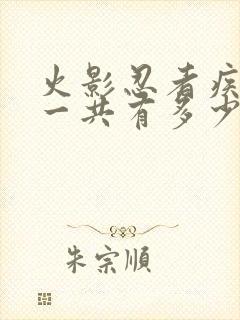 火影忍者疾
一共有多少
朱宗順